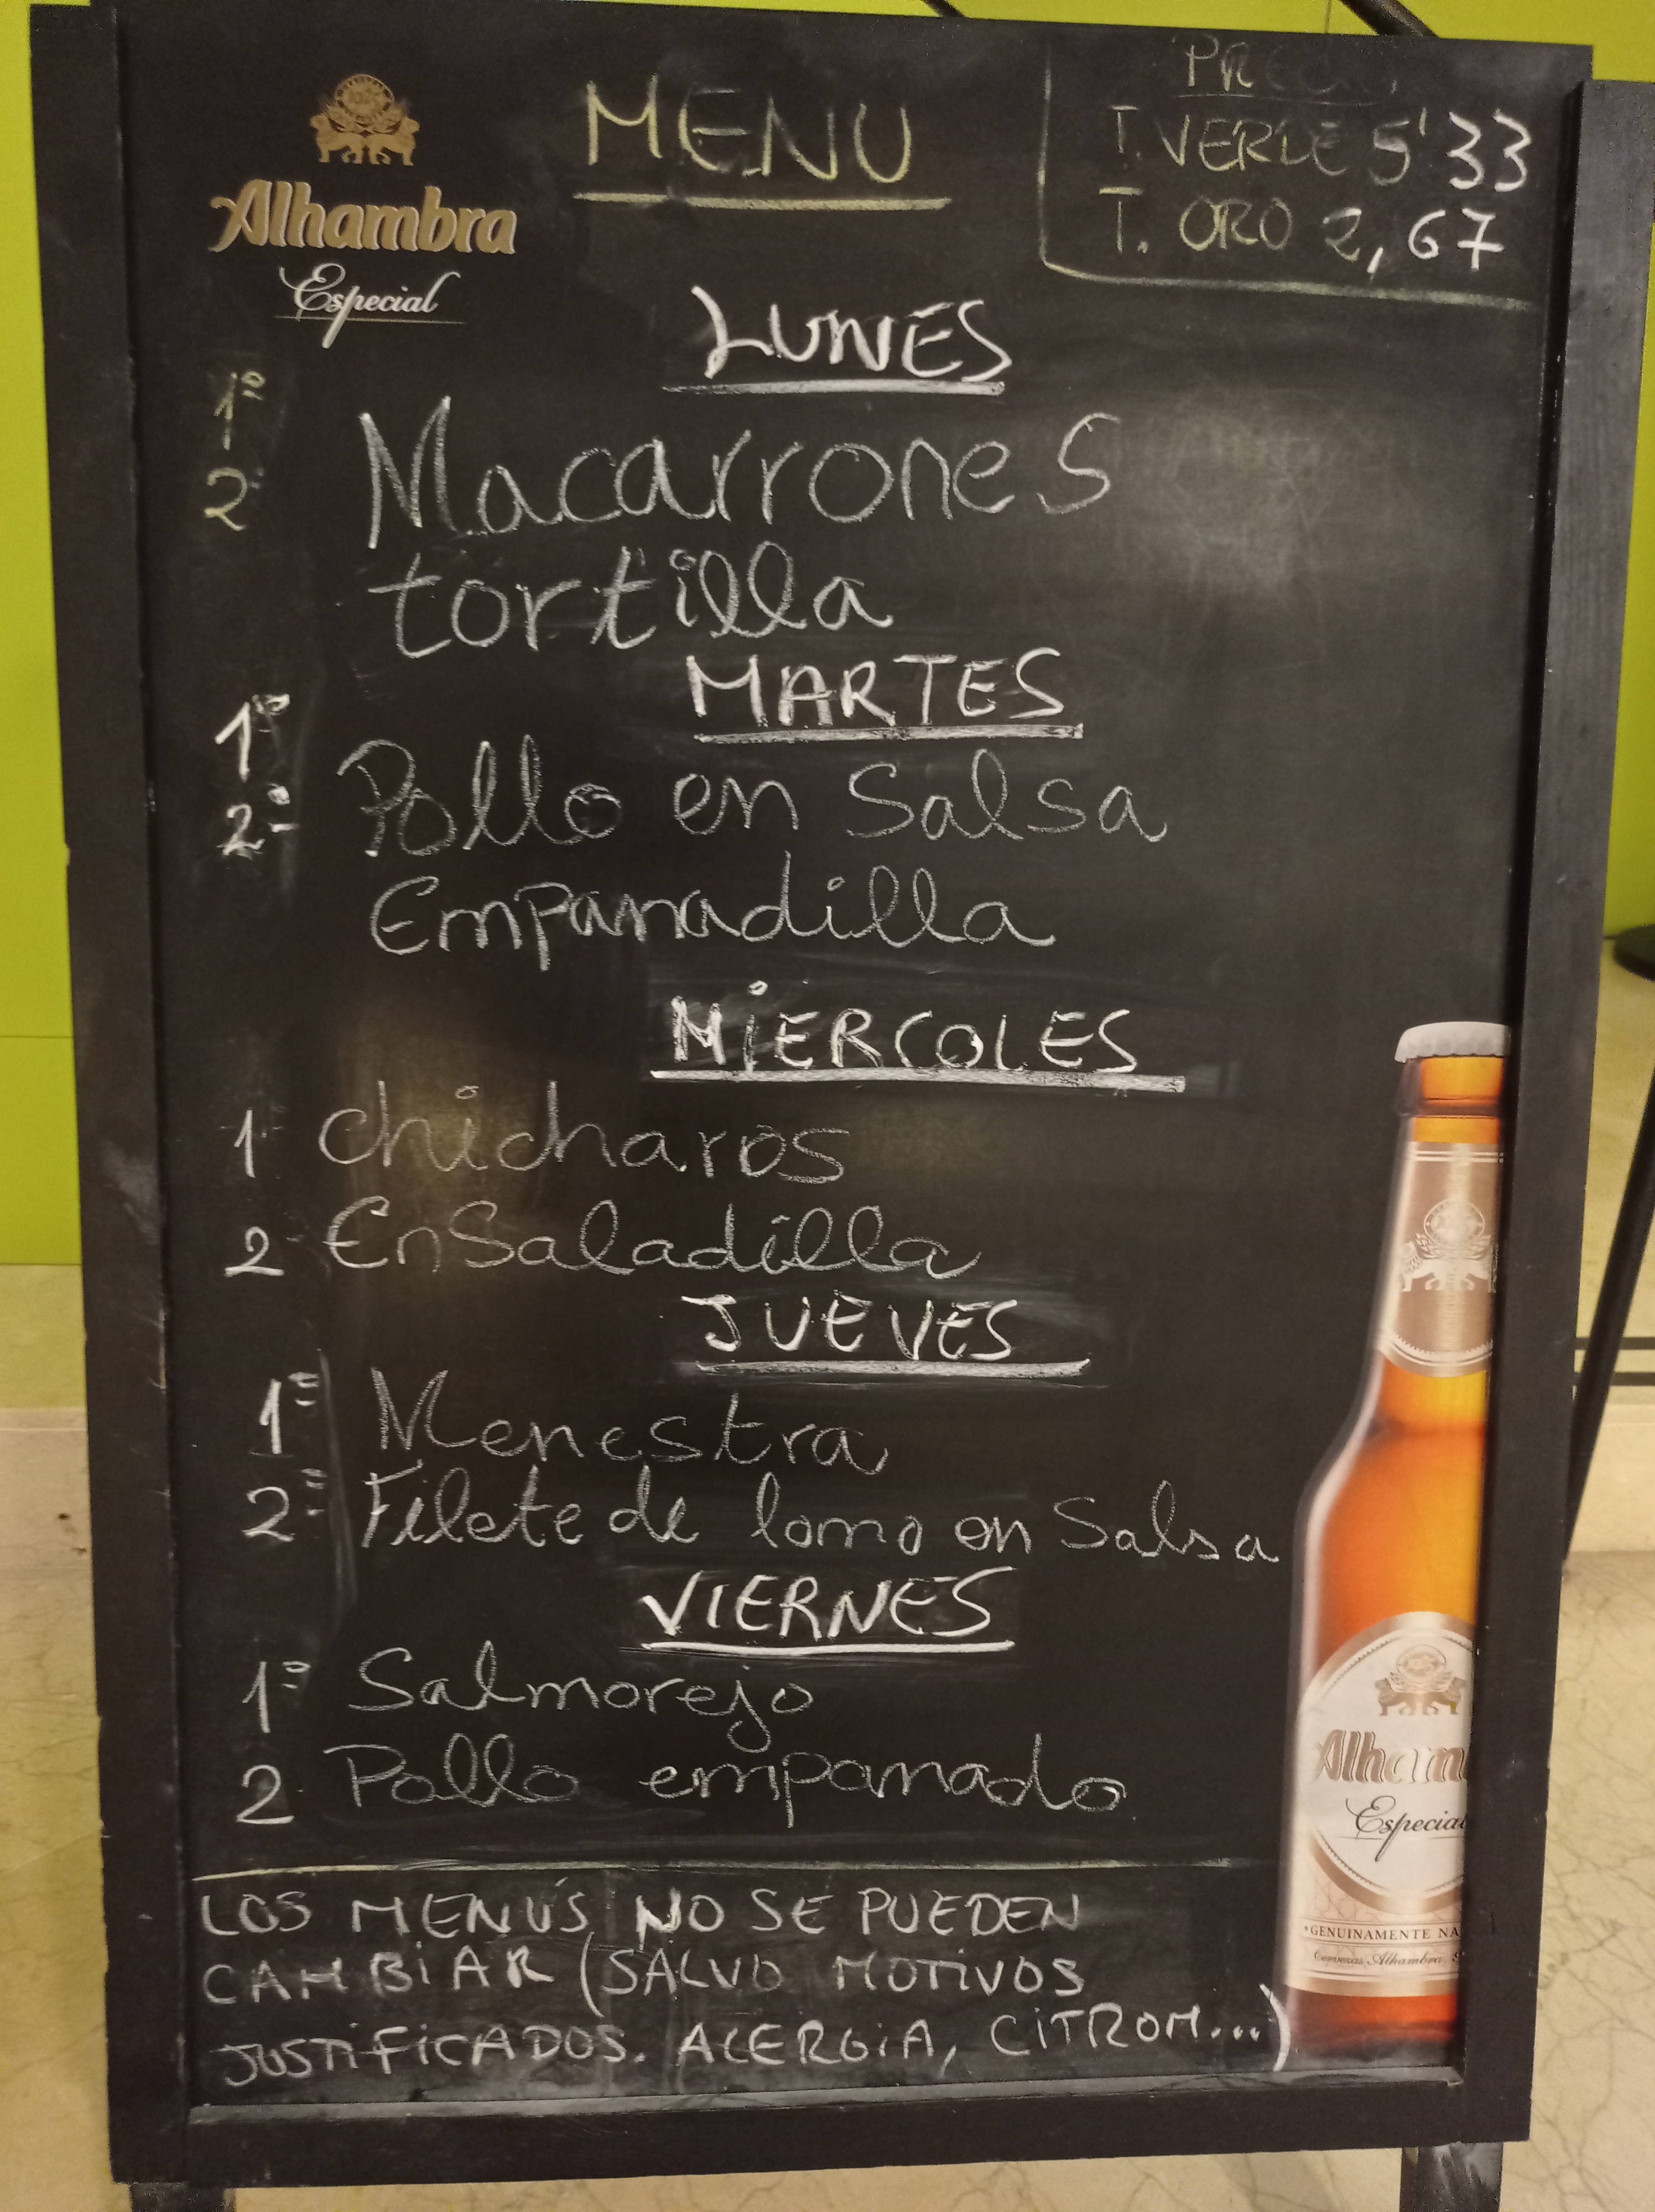 Alhambra
Especial
MENU
PRECIO
T. VERDE 5'33
T. ORO 2,67
LUNES
1º Macarrones
2 tortilla
MARTES
1º Pollo en Salsa
2º Empanadilla
MiERCOLES
1 chicharos
2 EnSaladilla
JUEVES
1º Menestra
2º Filete de lomo en Salsa
VIERNES
1º Salmorejo
2 Pollo empanado
LOS MENÚS NO SE PUEDEN
CAMBiAR (SALVO MOTiVOS
JUSTiFiCADOS. ALERGiA, CiTROM...)
Alham
Especial
"GENUINAMENTE NA
Cervezas Alhambra, S